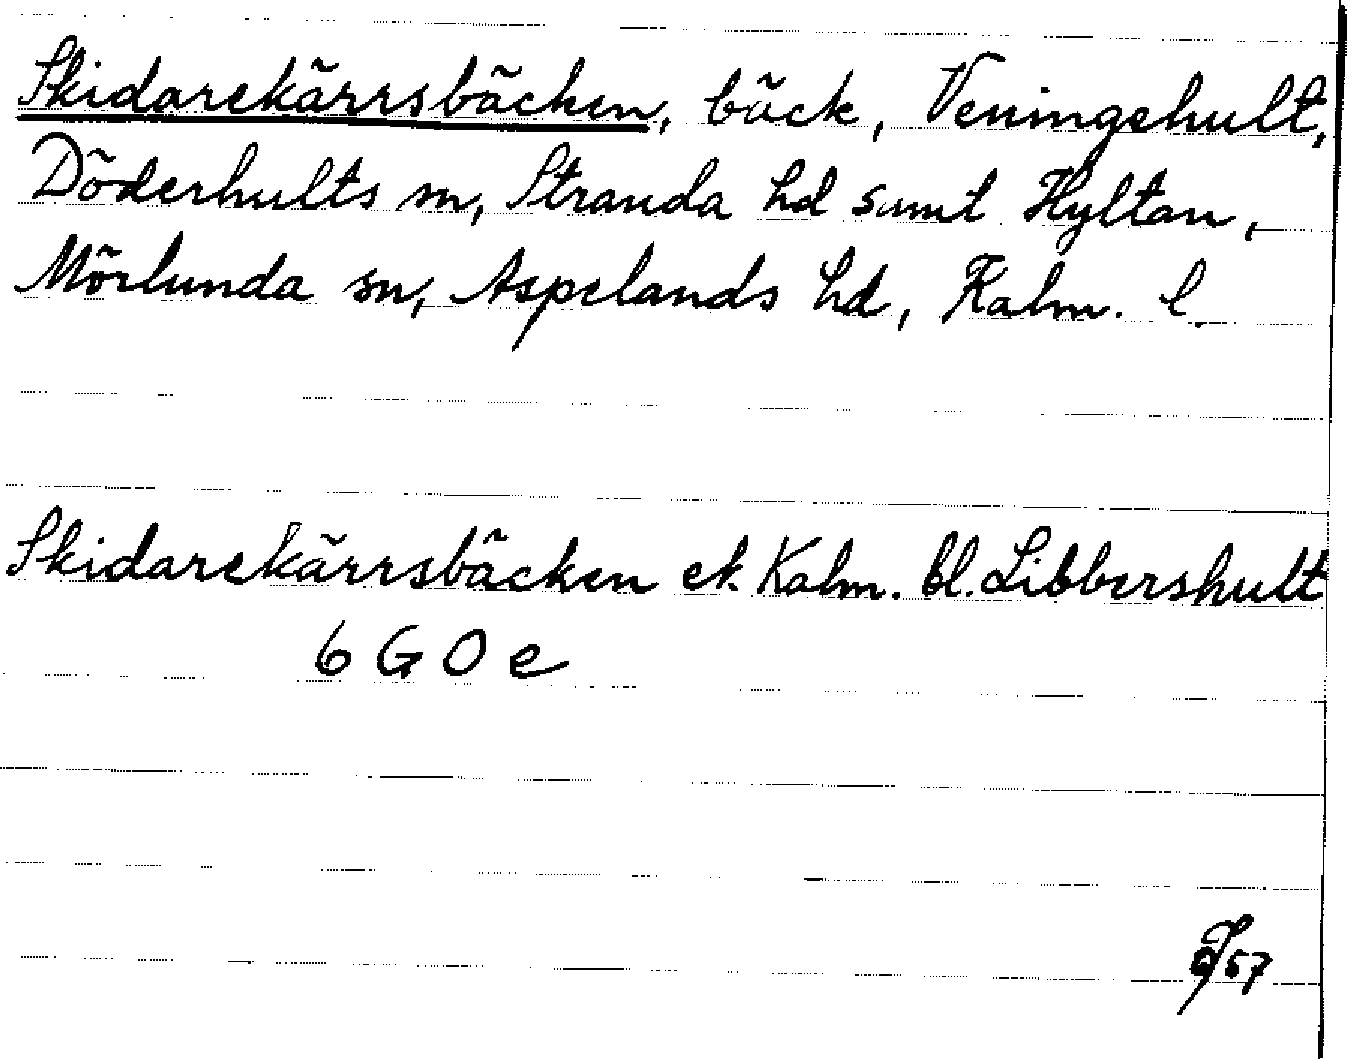 Skidarekärrsbäcken, bäck, Veningehult,
Döderhults sn, Stranda hd samt Hyltan,
Mörlunda sn, Aspelands hd, Kalm. l.
Skidarekärrsbäcken ek. Kalm. bl. Libbershult
6 G O e
57